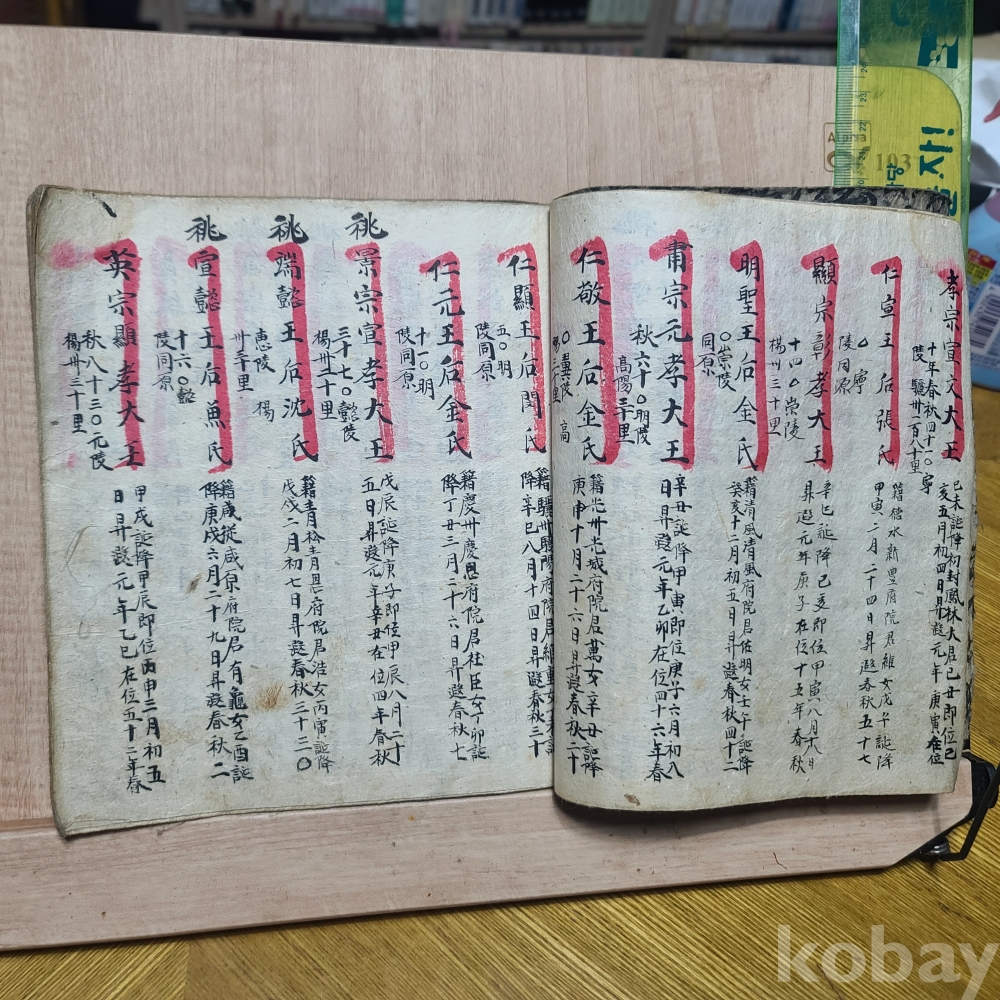 孝宗宣文大王
己未誕降初封鳳林大君己丑即位己
亥五月初四日昇遐元年庚寅在位
十年春秋四十一○寧
陵驪州一百八十里
仁宣王后張氏
籍德水新豊府院君維女戊午誕降
甲寅二月二十四日昇遐春秋五十七
○寧
陵同原
顯宗彰孝大王
辛巳誕降己亥即位甲寅八月十八日
昇遐元年庚子在位十五年春秋
三十四○崇陵
楊州三十里
明聖王后金氏
籍清風清風府院君佑明女壬午誕降
癸亥十二月初五日昇遐春秋四十二
○崇陵
同原
肅宗元孝大王
辛丑誕降甲寅即位庚子六月初八
日昇遐元年乙卯在位四十六年春
秋六十○明陵
高陽三十里
仁敬王后金氏
籍光州光城府院君萬女辛丑誕降
庚申十月二十六日昇遐春秋二十
○翼陵
高
仁顯王后閔氏
籍驪州驪陽府院君維重女
降辛巳八月十四日昇遐春秋三十
五○明
陵同原
仁元王后金氏
籍慶州慶恩府院君柱臣女丁卯誕
降丁丑三月二十六日昇遐春秋七
十一○明
陵同原
祧景宗宣孝大王
戊辰誕降庚子即位甲辰八月二十
五日昇遐元年辛丑在位四年春秋
三十七○懿陵
楊州二十里
祧端懿王后沈氏
籍青松青恩府院君浩女丙寅誕降
戊戌二月初七日昇遐春秋三十三○
惠陵楊
州三十里
祧宣懿王后魚氏
籍咸從咸原府院君有龜女乙酉誕
降庚戌六月二十九日昇遐春秋二
十六○懿
陵同原
英宗顯孝大王
甲戌誕降甲辰即位丙申三月初五
日昇遐元年乙巳在位五十二年春
秋八十三○元陵
楊州三十里
Alpha
193
kobay